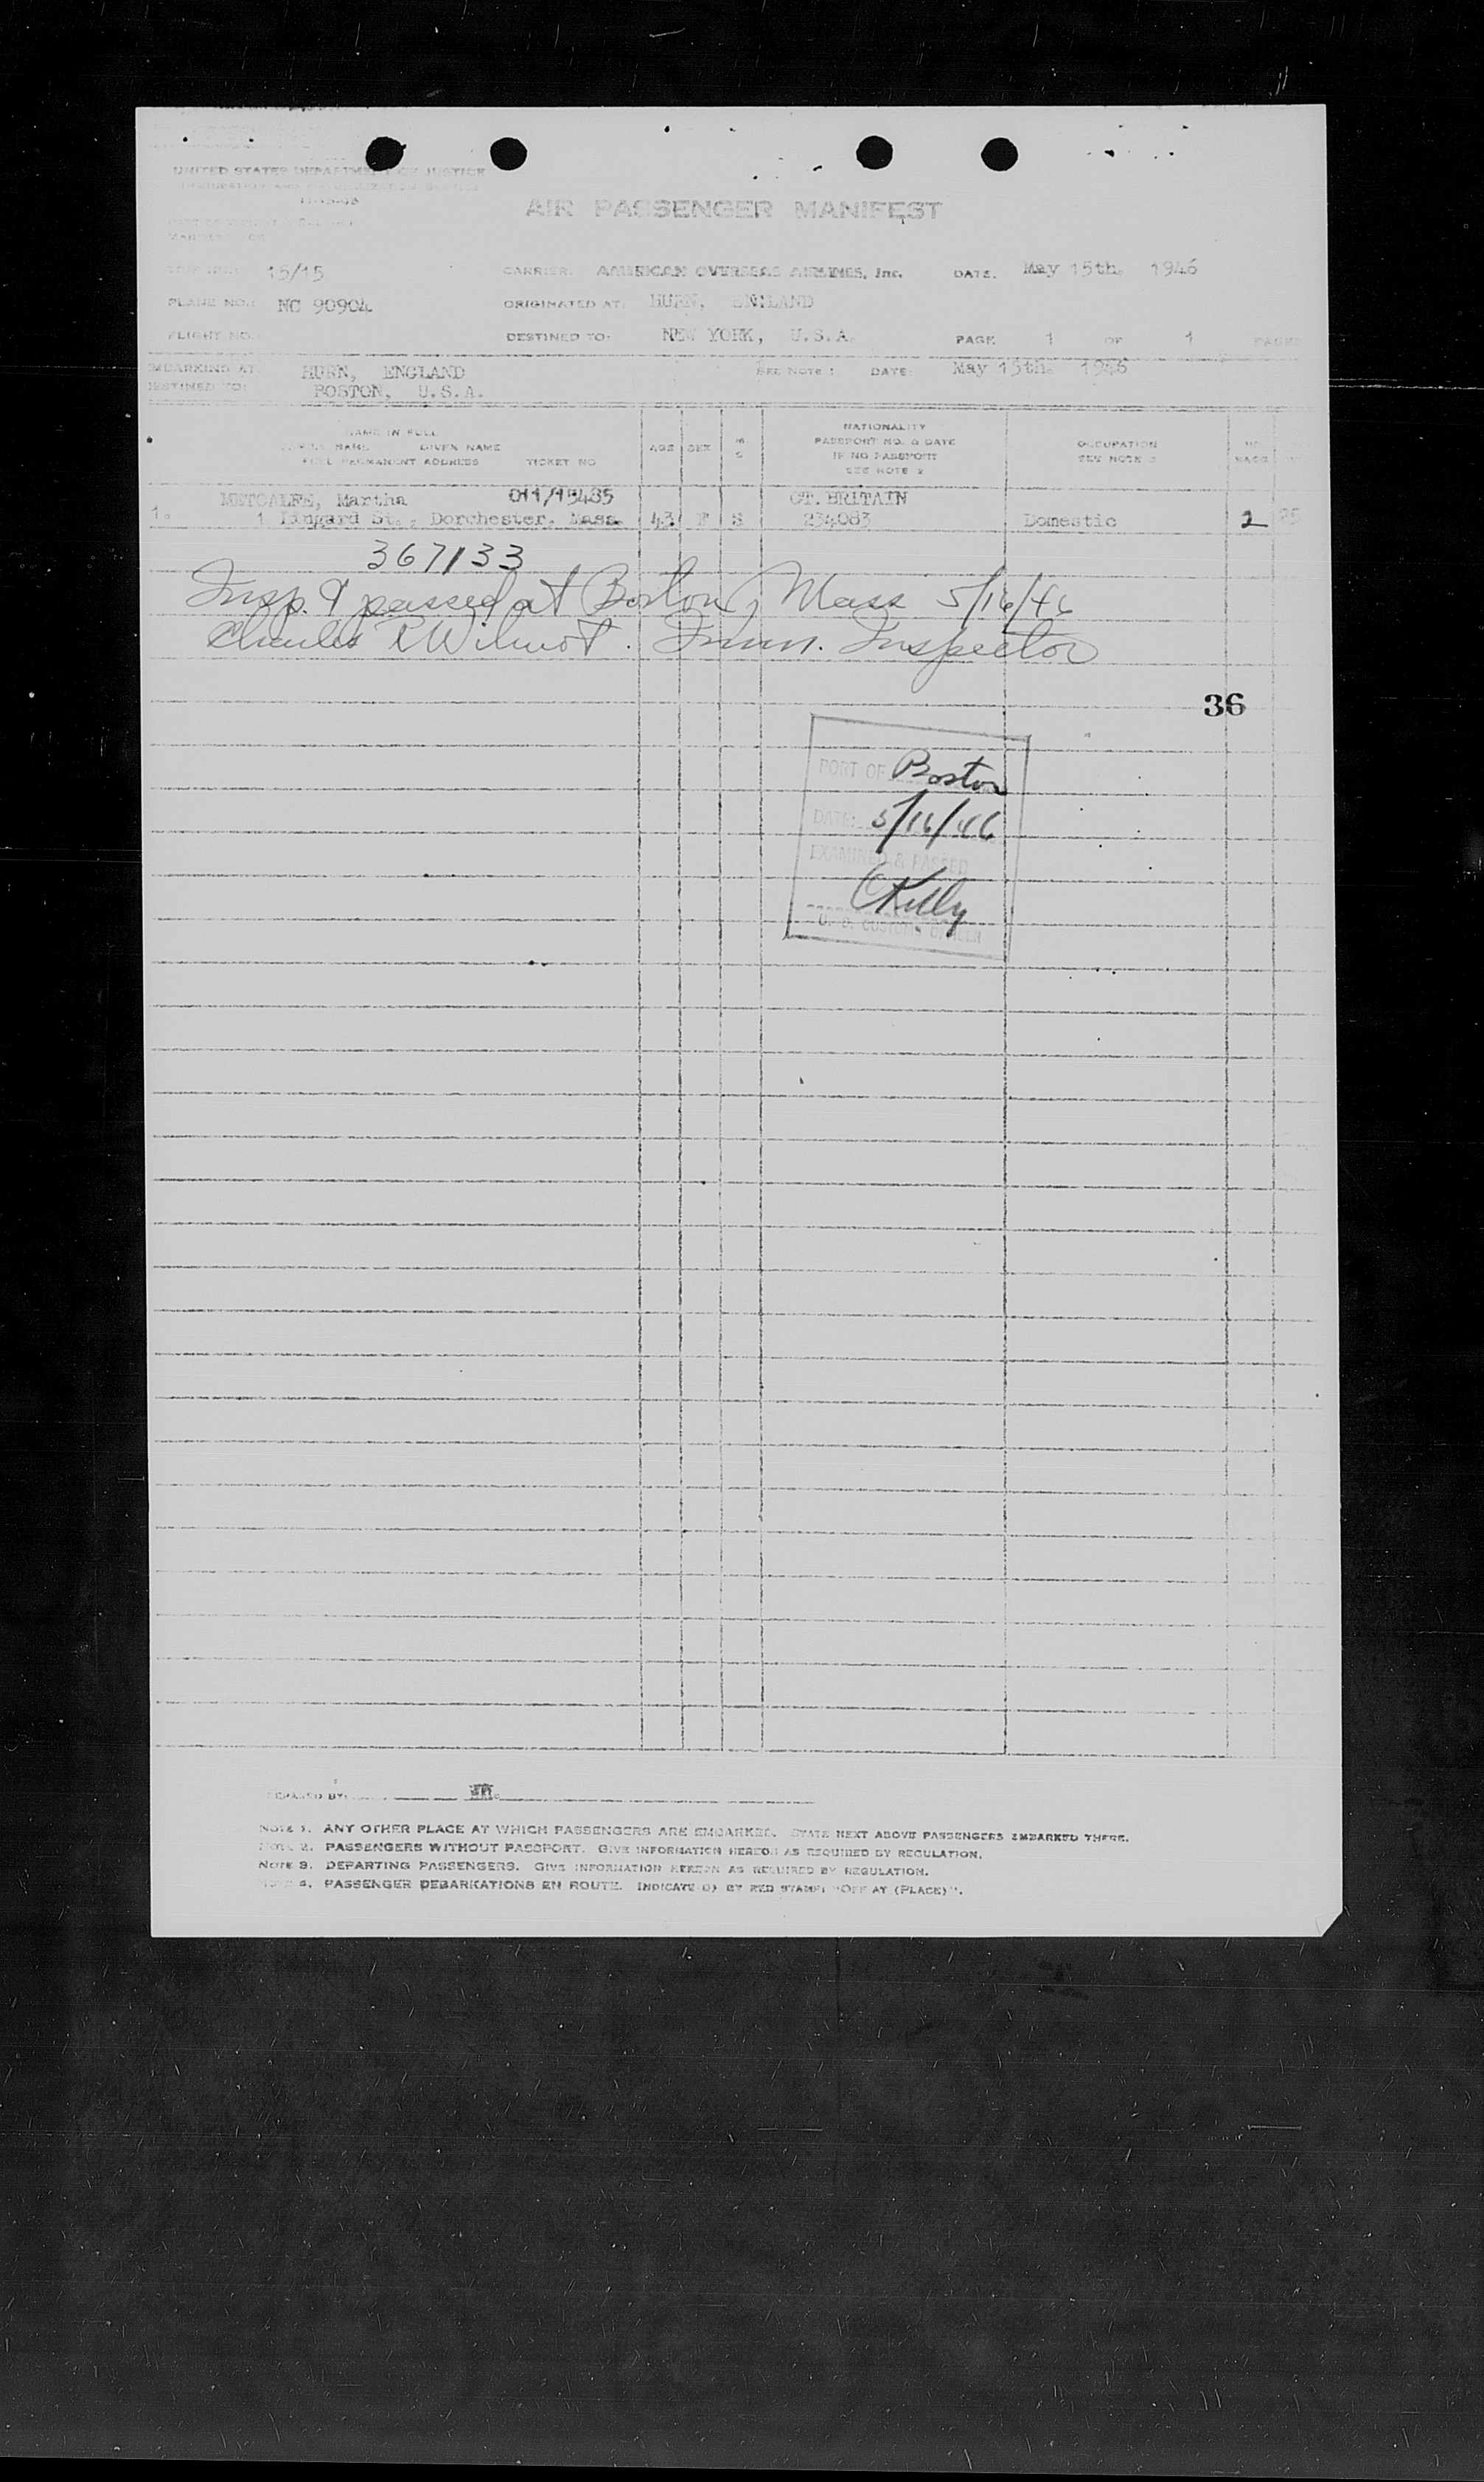 UNITED STATES DEPARTMENT OF JUSTICE
AIR PASSENGER MANIFEST
15/15 CARRIER: AMERICAN OVERSEAS AIRLINES, Inc. DATE: May 15th. 1946
PLANE NO.: NC 90904 ORIGINATED AT: HURN, ENGLAND
FLIGHT NO.: DESTINED TO: NEW YORK, U.S.A. PAGE 1 OF 1 PAGES
EMBARKING AT: HURN, ENGLAND SEE NOTE 1 DATE: May 15th. 1946
DESTINED TO: BOSTON, U.S.A.
NAME IN FULL
GIVEN NAME
FULL PERMANENT ADDRESS TICKET NO
AGE SEX M S
NATIONALITY
PASSPORT NO. & DATE
IF NO PASSPORT
SEE NOTE 2
OCCUPATION
SEE NOTE 3
METCALFE, Martha 011/15485 GT. BRITAIN
1. 1 Lingard St., Dorchester, Mass. 43 F S 234083 Domestic 2
367133
Insp. & passed at Boston, Mass 5/16/46
Charles R Wilmot. Imm. Inspector
36
PORT OF Boston
DATE: 5/16/46
EXAMINED & PASSED
OKelly
U. S. CUSTOMS
PREPARED BY:
NOTE 1. ANY OTHER PLACE AT WHICH PASSENGERS ARE EMBARKED. STATE NEXT ABOVE PASSENGERS EMBARKED THERE.
NOTE 2. PASSENGERS WITHOUT PASSPORT. GIVE INFORMATION HEREON AS REQUIRED BY REGULATION.
NOTE 3. DEPARTING PASSENGERS. GIVE INFORMATION HEREON AS REQUIRED BY REGULATION.
NOTE 4. PASSENGER DEBARKATIONS EN ROUTE. INDICATE BY RED STAMP: "OFF AT (PLACE)".